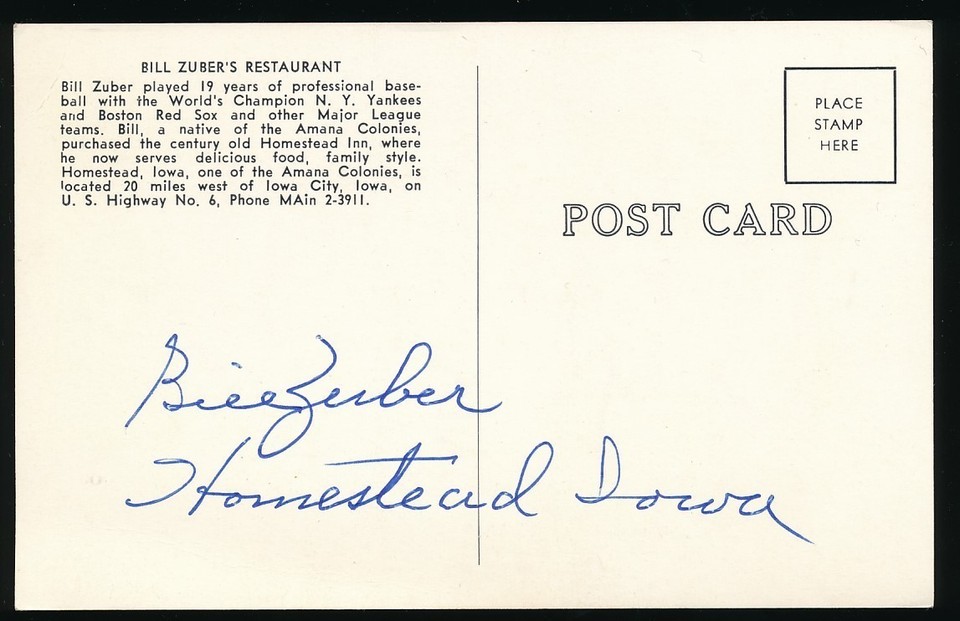 BILL ZUBER'S RESTAURANT
Bill Zuber played 19 years of professional base-
ball with the World's Champion N. Y. Yankees
and Boston Red Sox and other Major League
teams. Bill, a native of the Amana Colonies,
purchased the century old Homestead Inn, where
he now serves delicious food, family style.
Homestead, Iowa, one of the Amana Colonies, is
located 20 miles west of Iowa City, Iowa, on
U. S. Highway No. 6, Phone MAin 2-3911.
PLACE
STAMP
HERE
POST CARD
Bill Zuber
Homestead Iowa